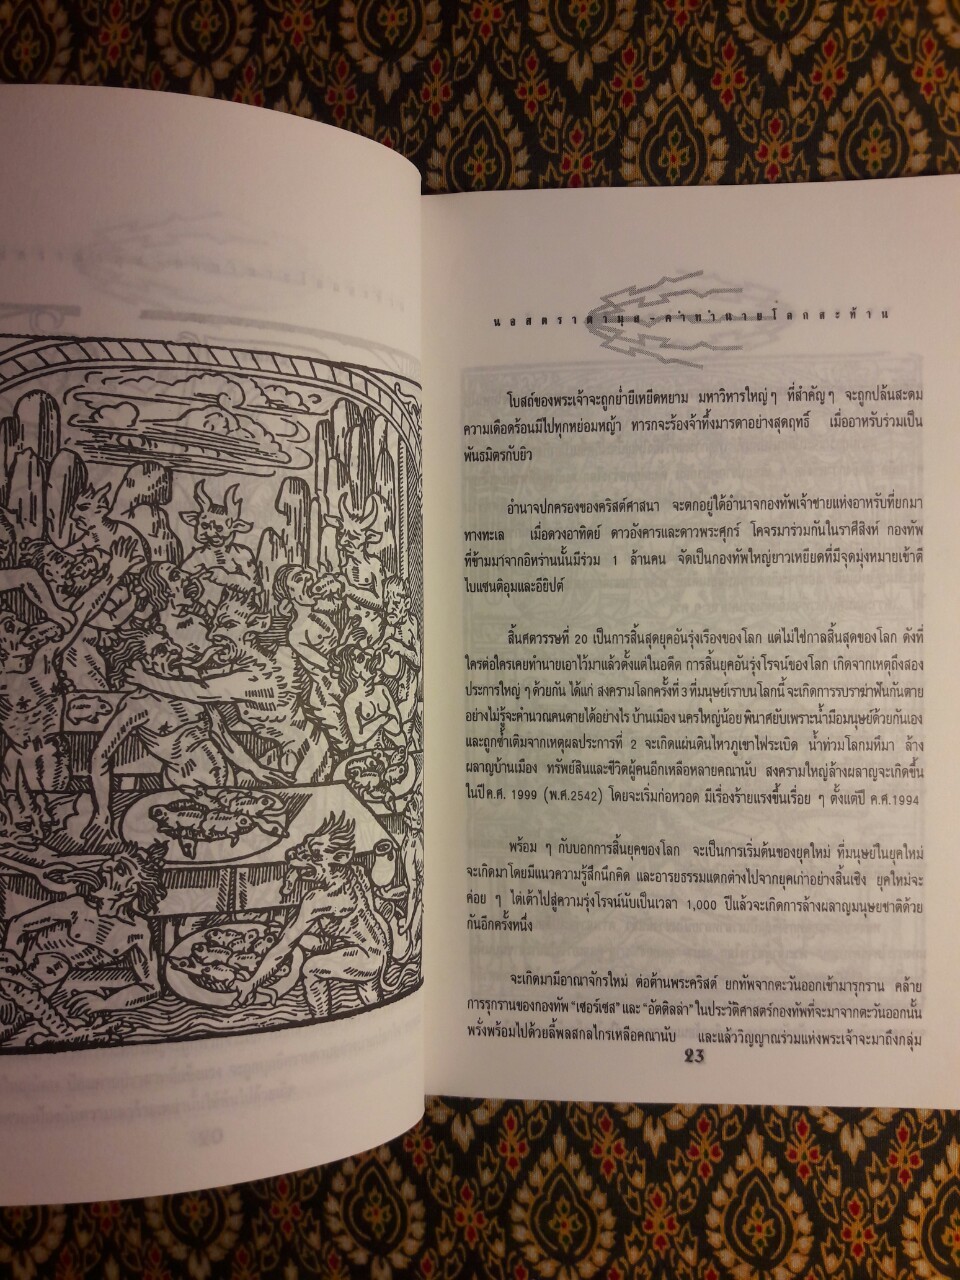 นอสตราดามุส-คำทำนายโลกสะท้าน
โบสถ์ของพระเจ้าจะถูกย่ำยีเหยียดหยาม มหาวิหารใหญ่ๆ ที่สำคัญๆ จะถูกปล้นสะดม
ความเดือดร้อนมีไปทุกหย่อมหญ้า ทารกจะร้องจ้าทึ้งมารดาอย่างสุดฤทธิ์ เมื่ออาหรับร่วมเป็น
พันธมิตรกับยิว
อำนาจปกครองของคริสต์ศาสนา จะตกอยู่ใต้อำนาจกองทัพเจ้าชายแห่งอาหรับที่ยกมา
ทางทะเล เมื่อดวงอาทิตย์ ดาวอังคารและดาวพระศุกร์ โคจรมาร่วมกันในราศีสิงห์ กองทัพ
ที่ข้ามมาจากอิหร่านนั้นมีร่วม 1 ล้านคน จัดเป็นกองทัพใหญ่ยาวเหยียดที่มีจุดมุ่งหมายเข้าตี
ไบแซนติอุมและอียิปต์
สิ้นศตวรรษที่ 20 เป็นการสิ้นสุดยุคอันรุ่งเรืองของโลก แต่ไม่ใช่กาลสิ้นสุดของโลก ดังที่
ใครต่อใครเคยทำนายเอาไว้มาแล้วตั้งแต่ในอดีต การสิ้นยุคอันรุ่งโรจน์ของโลก เกิดจากเหตุถึงสอง
ประการใหญ่ ๆ ด้วยกัน ได้แก่ สงครามโลกครั้งที่ 3 ที่มนุษย์เราบนโลกนี้ จะเกิดการรบราฆ่าฟันกันตาย
อย่างไม่รู้จะคำนวณคนตายได้อย่างไร บ้านเมือง นครใหญ่น้อย พินาศยับเพราะน้ำมือมนุษย์ด้วยกันเอง
และถูกซ้ำเติมจากเหตุผลประการที่ 2 จะเกิดแผ่นดินไหวภูเขาไฟระเบิด น้ำท่วมโลกมหึมา ล้าง
ผลาญบ้านเมือง ทรัพย์สินและชีวิตผู้คนอีกเหลือหลายคณานับ สงครามใหญ่ล้างผลาญจะเกิดขึ้น
ในปี ค.ศ. 1999 (พ.ศ.2542) โดยจะเริ่มก่อหวอด มีเรื่องร้ายแรงขึ้นเรื่อย ๆ ตั้งแต่ปี ค.ศ.1994
พร้อม ๆ กับบอกการสิ้นยุคของโลก จะเป็นการเริ่มต้นของยุคใหม่ ที่มนุษย์ในยุคใหม่
จะเกิดมาโดยมีแนวความรู้สึกนึกคิด และอารยธรรมแตกต่างไปจากยุคเก่าอย่างสิ้นเชิง ยุคใหม่จะ
ค่อย ๆ ไต่เต้าไปสู่ความรุ่งโรจน์นับเป็นเวลา 1,000 ปีแล้วจะเกิดการล้างผลาญมนุษยชาติด้วย
กันอีกครั้งหนึ่ง
จะเกิดมามีอาณาจักรใหม่ ต่อต้านพระคริสต์ ยกทัพจากตะวันออกเข้ามารุกราน คล้าย
การรุกรานของกองทัพ "เซอร์เซส" และ "อัตติลล่า" ในประวัติศาสตร์กองทัพที่จะมาจากตะวันออกนั้น
พรั่งพร้อมไปด้วยลี้พลสกลไกรเหลือคณานับ และแล้ววิญญาณร่วมแห่งพระเจ้าจะมาถึงกลุ่ม
23